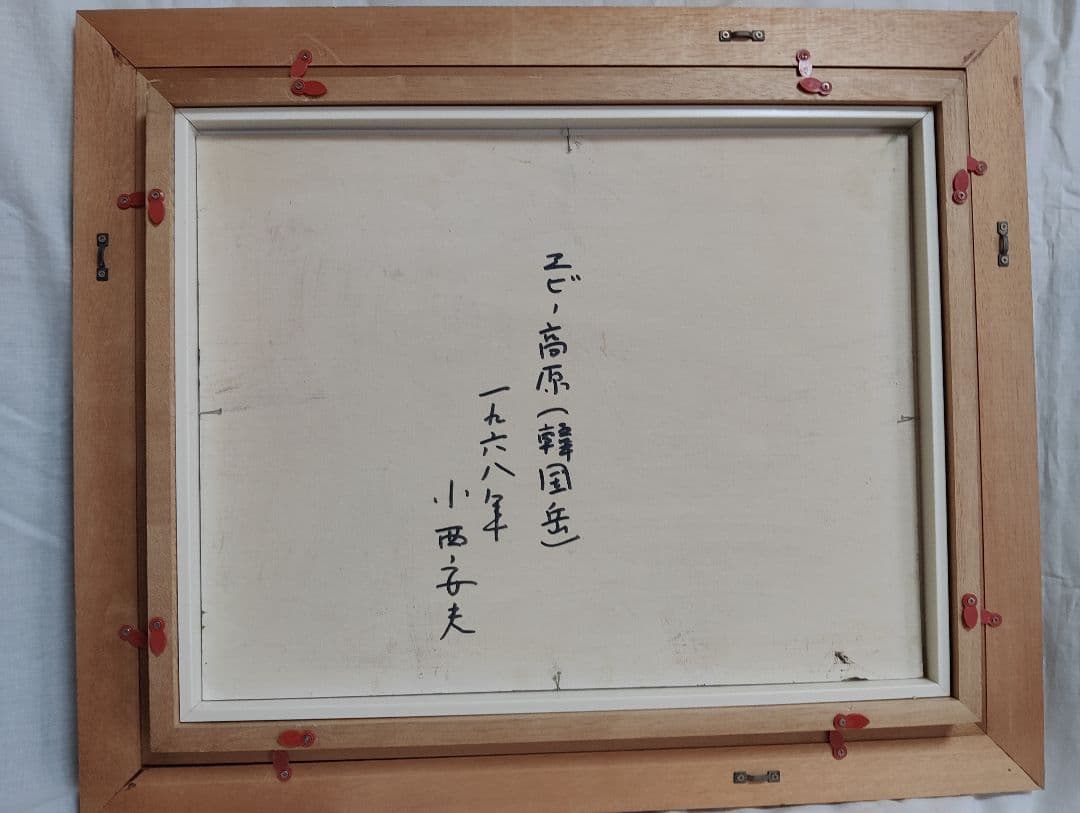 エビノ高原(韓国岳)
一九六八年
小西安夫